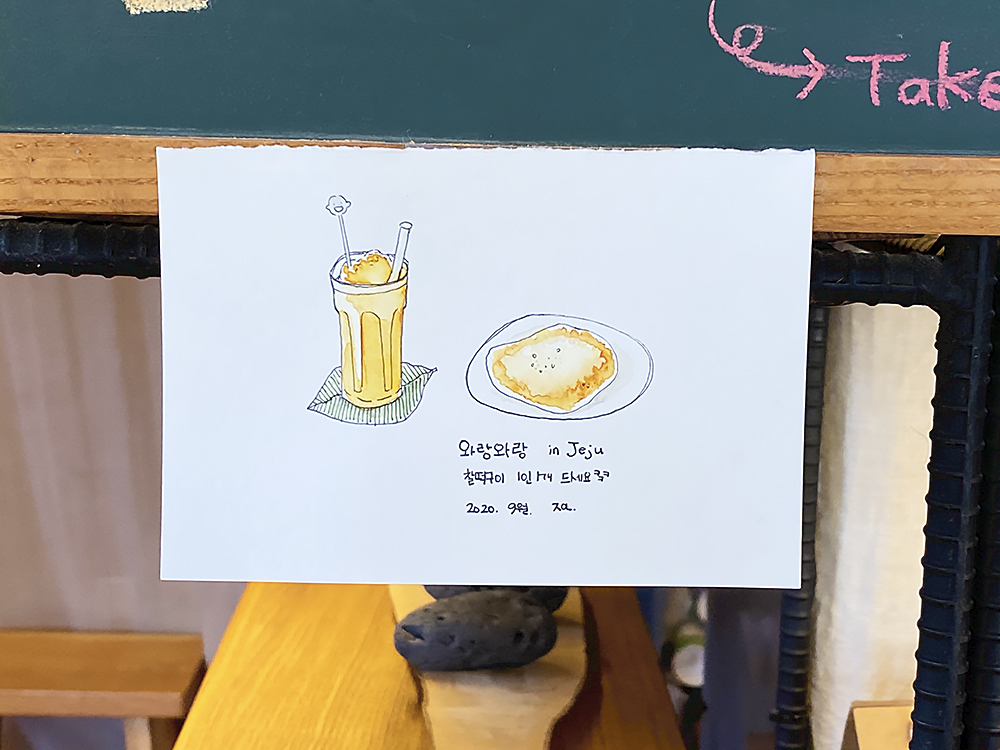 Take
와랑와랑 in Jeju
찰떡구이 1인 1개 드세요 ㅋㅋ
2020. 9월. ja.